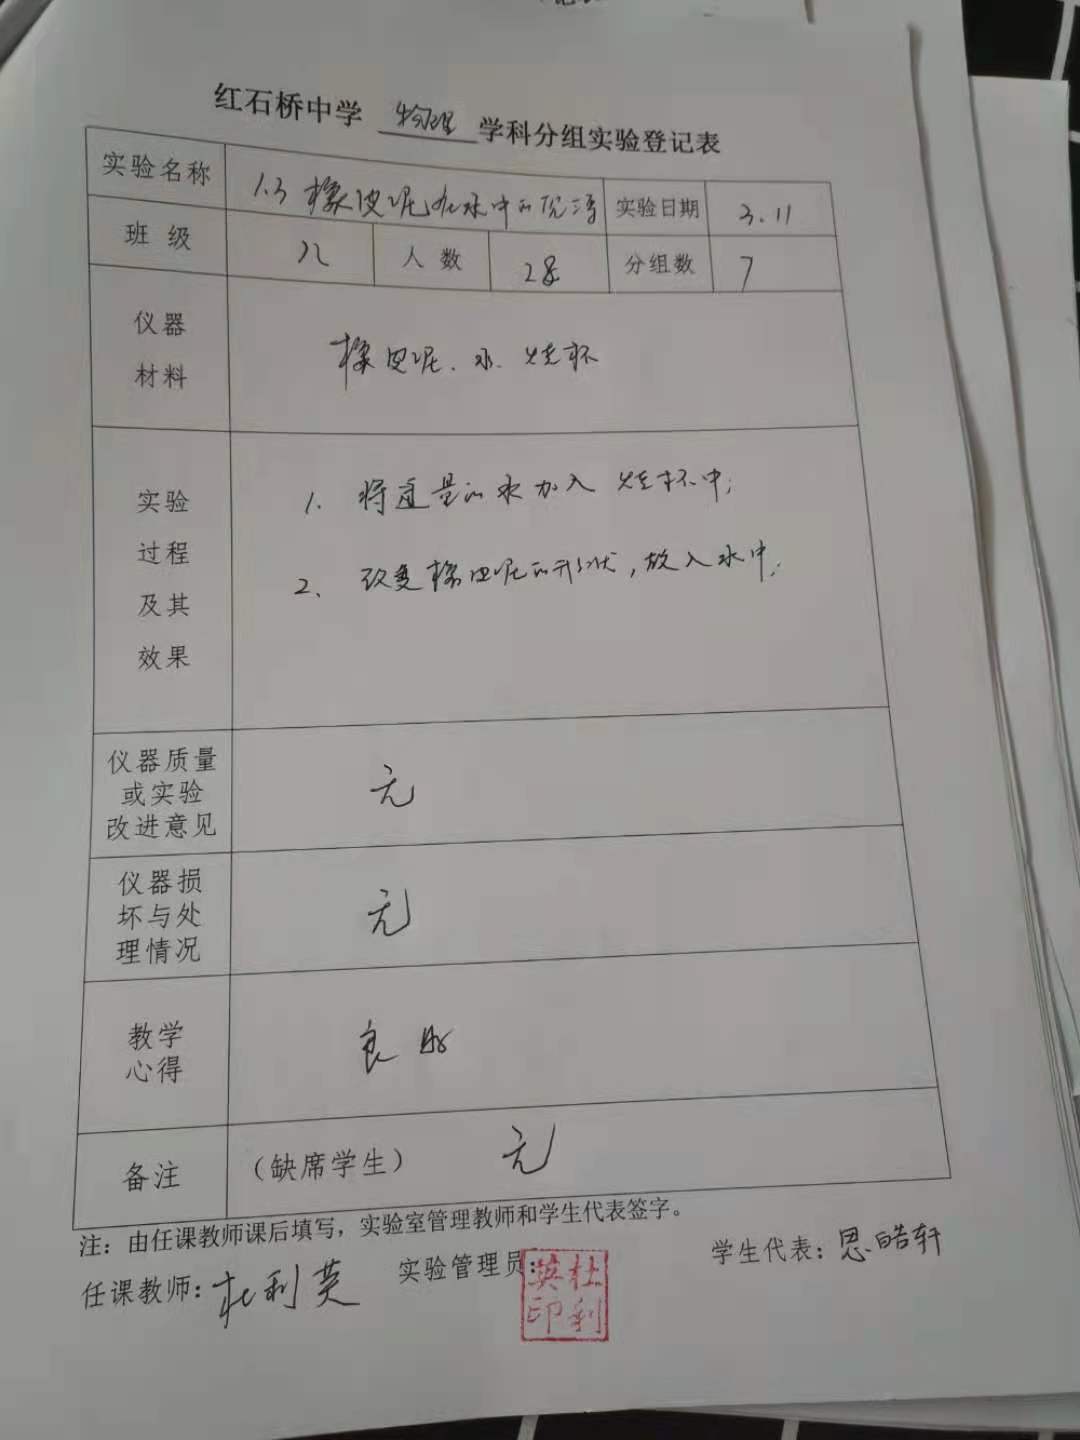 红石桥中学 物理 学科分组实验登记表
实验名称 1.3 橡皮泥在水中的沉浮 实验日期 3.11
班级 八 人数 28 分组数 7
仪器
材料
橡皮泥、水、烧杯
实验
过程
及其
效果
1. 将适量的水加入烧杯中;
2、改变橡皮泥的形状,放入水中;
仪器质量
或实验
改进意见
无
仪器损
坏与处
理情况
无
教学
心得
良好
备注 (缺席学生) 无
注:由任课教师课后填写,实验室管理教师和学生代表签字。
任课教师:杜利英 实验管理员: 学生代表:思皓轩
杜利
英印